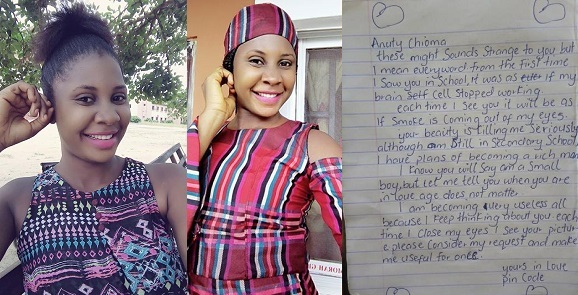 Anuty Chioma
these might Sounds Strange to you but
I mean everyword from the first time
I Saw you in School, It was as if my
brain Self Cell Stopped working
each time I See you it will be as
if Smoke is Coming out of my eyes.
your beauty is killing me Seriously
although am Still in Secondary School,
I have plans of becoming a rich man
I know you will Say am a Small
boy, but let me tell you when you are
in love age does not matter.
I am becoming very useless all
because I keep thinking about you each
time I Close my eyes I See your pictur
e please Consider my request and make
me useful for once.
yours in Love
Pin Cocle
MORAH